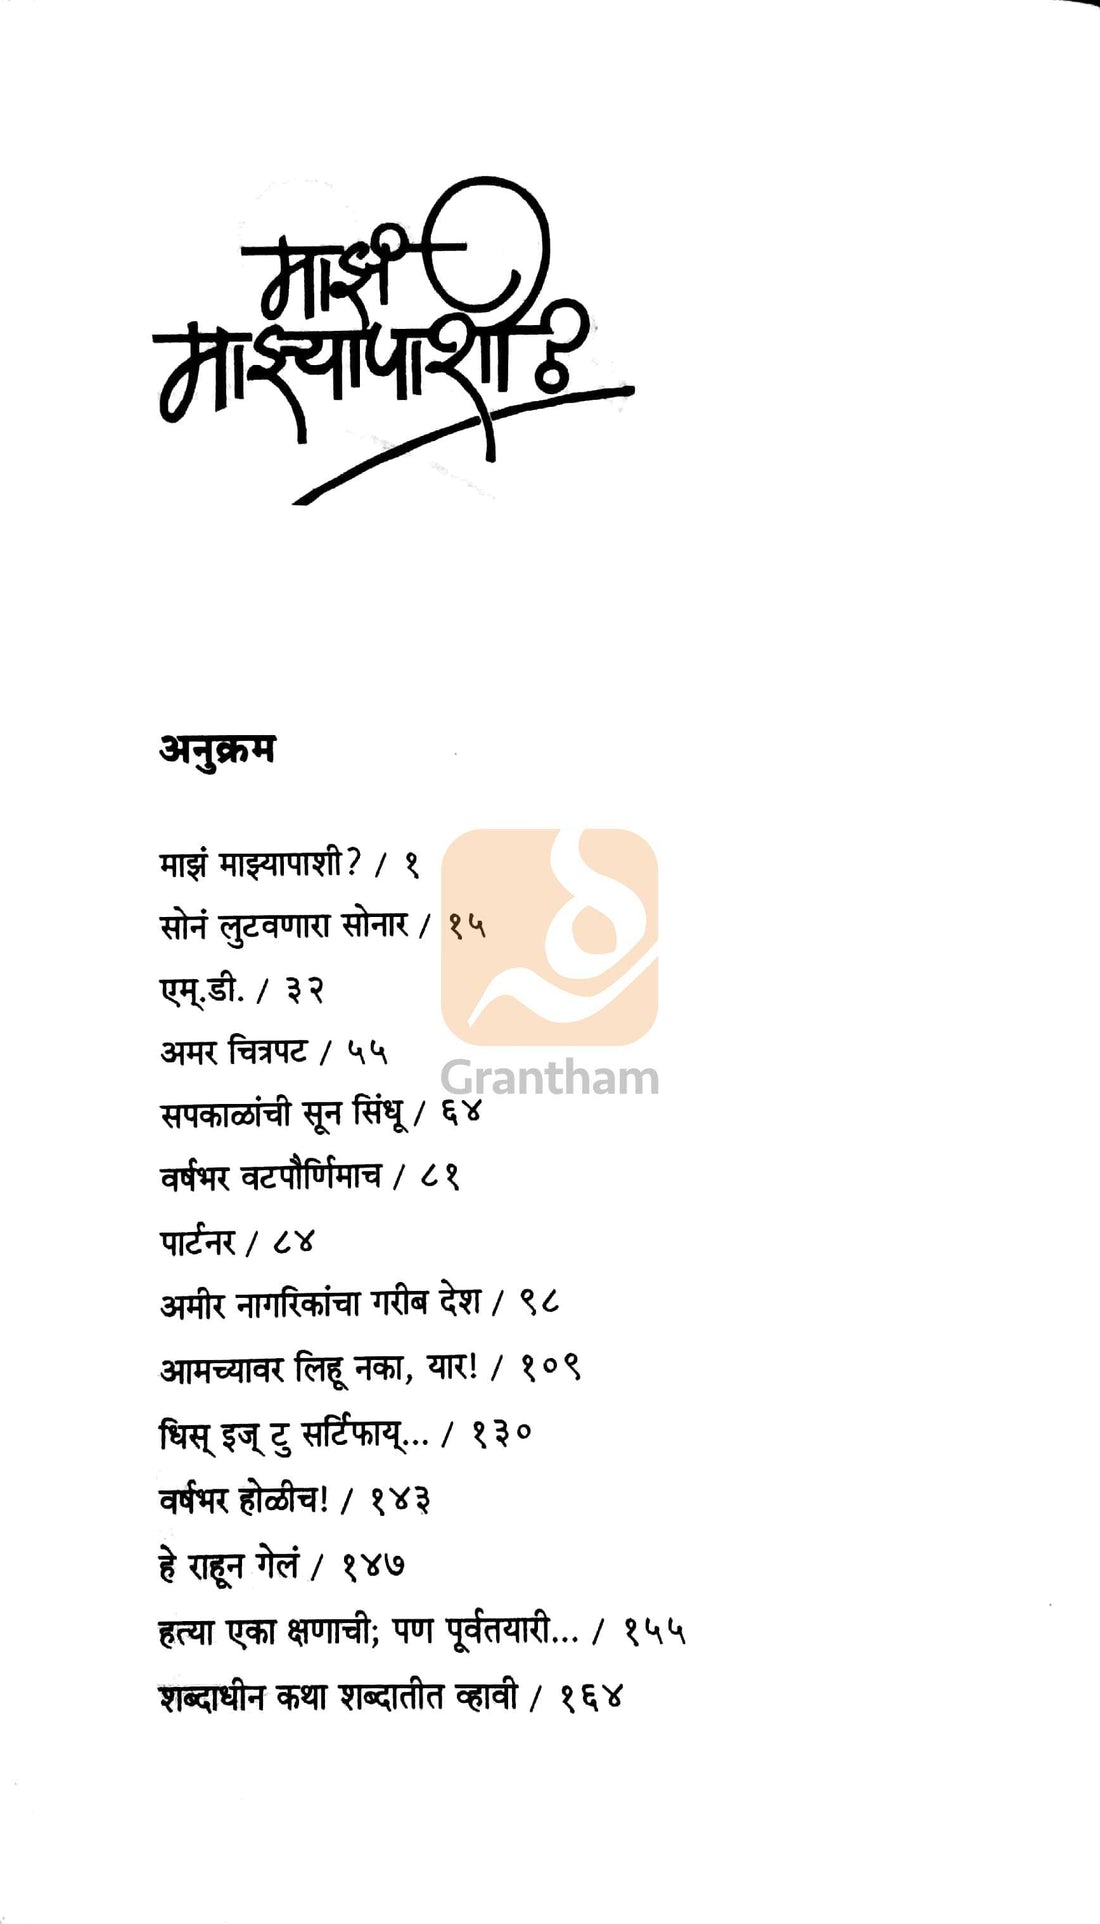 माझं
माझ्यापाशी?
अनुक्रम
माझं माझ्यापाशी? / १
सोनं लुटवणारा सोनार / १५
एम्.डी. / ३२
अमर चित्रपट / ५५
Grantham
सपकाळांची सून सिंधू / ६४
वर्षभर वटपौर्णिमाच / ८१
पार्टनर / ८४
अमीर नागरिकांचा गरीब देश / ९८
आमच्यावर लिहू नका, यार! / १०९
धिस् इज् टु सर्टिफाय्... / १३०
वर्षभर होळीच! / १४३
हे राहून गेलं / १४७
हत्या एका क्षणाची; पण पूर्वतयारी... / १५५
शब्दाधीन कथा शब्दातीत व्हावी / १६४